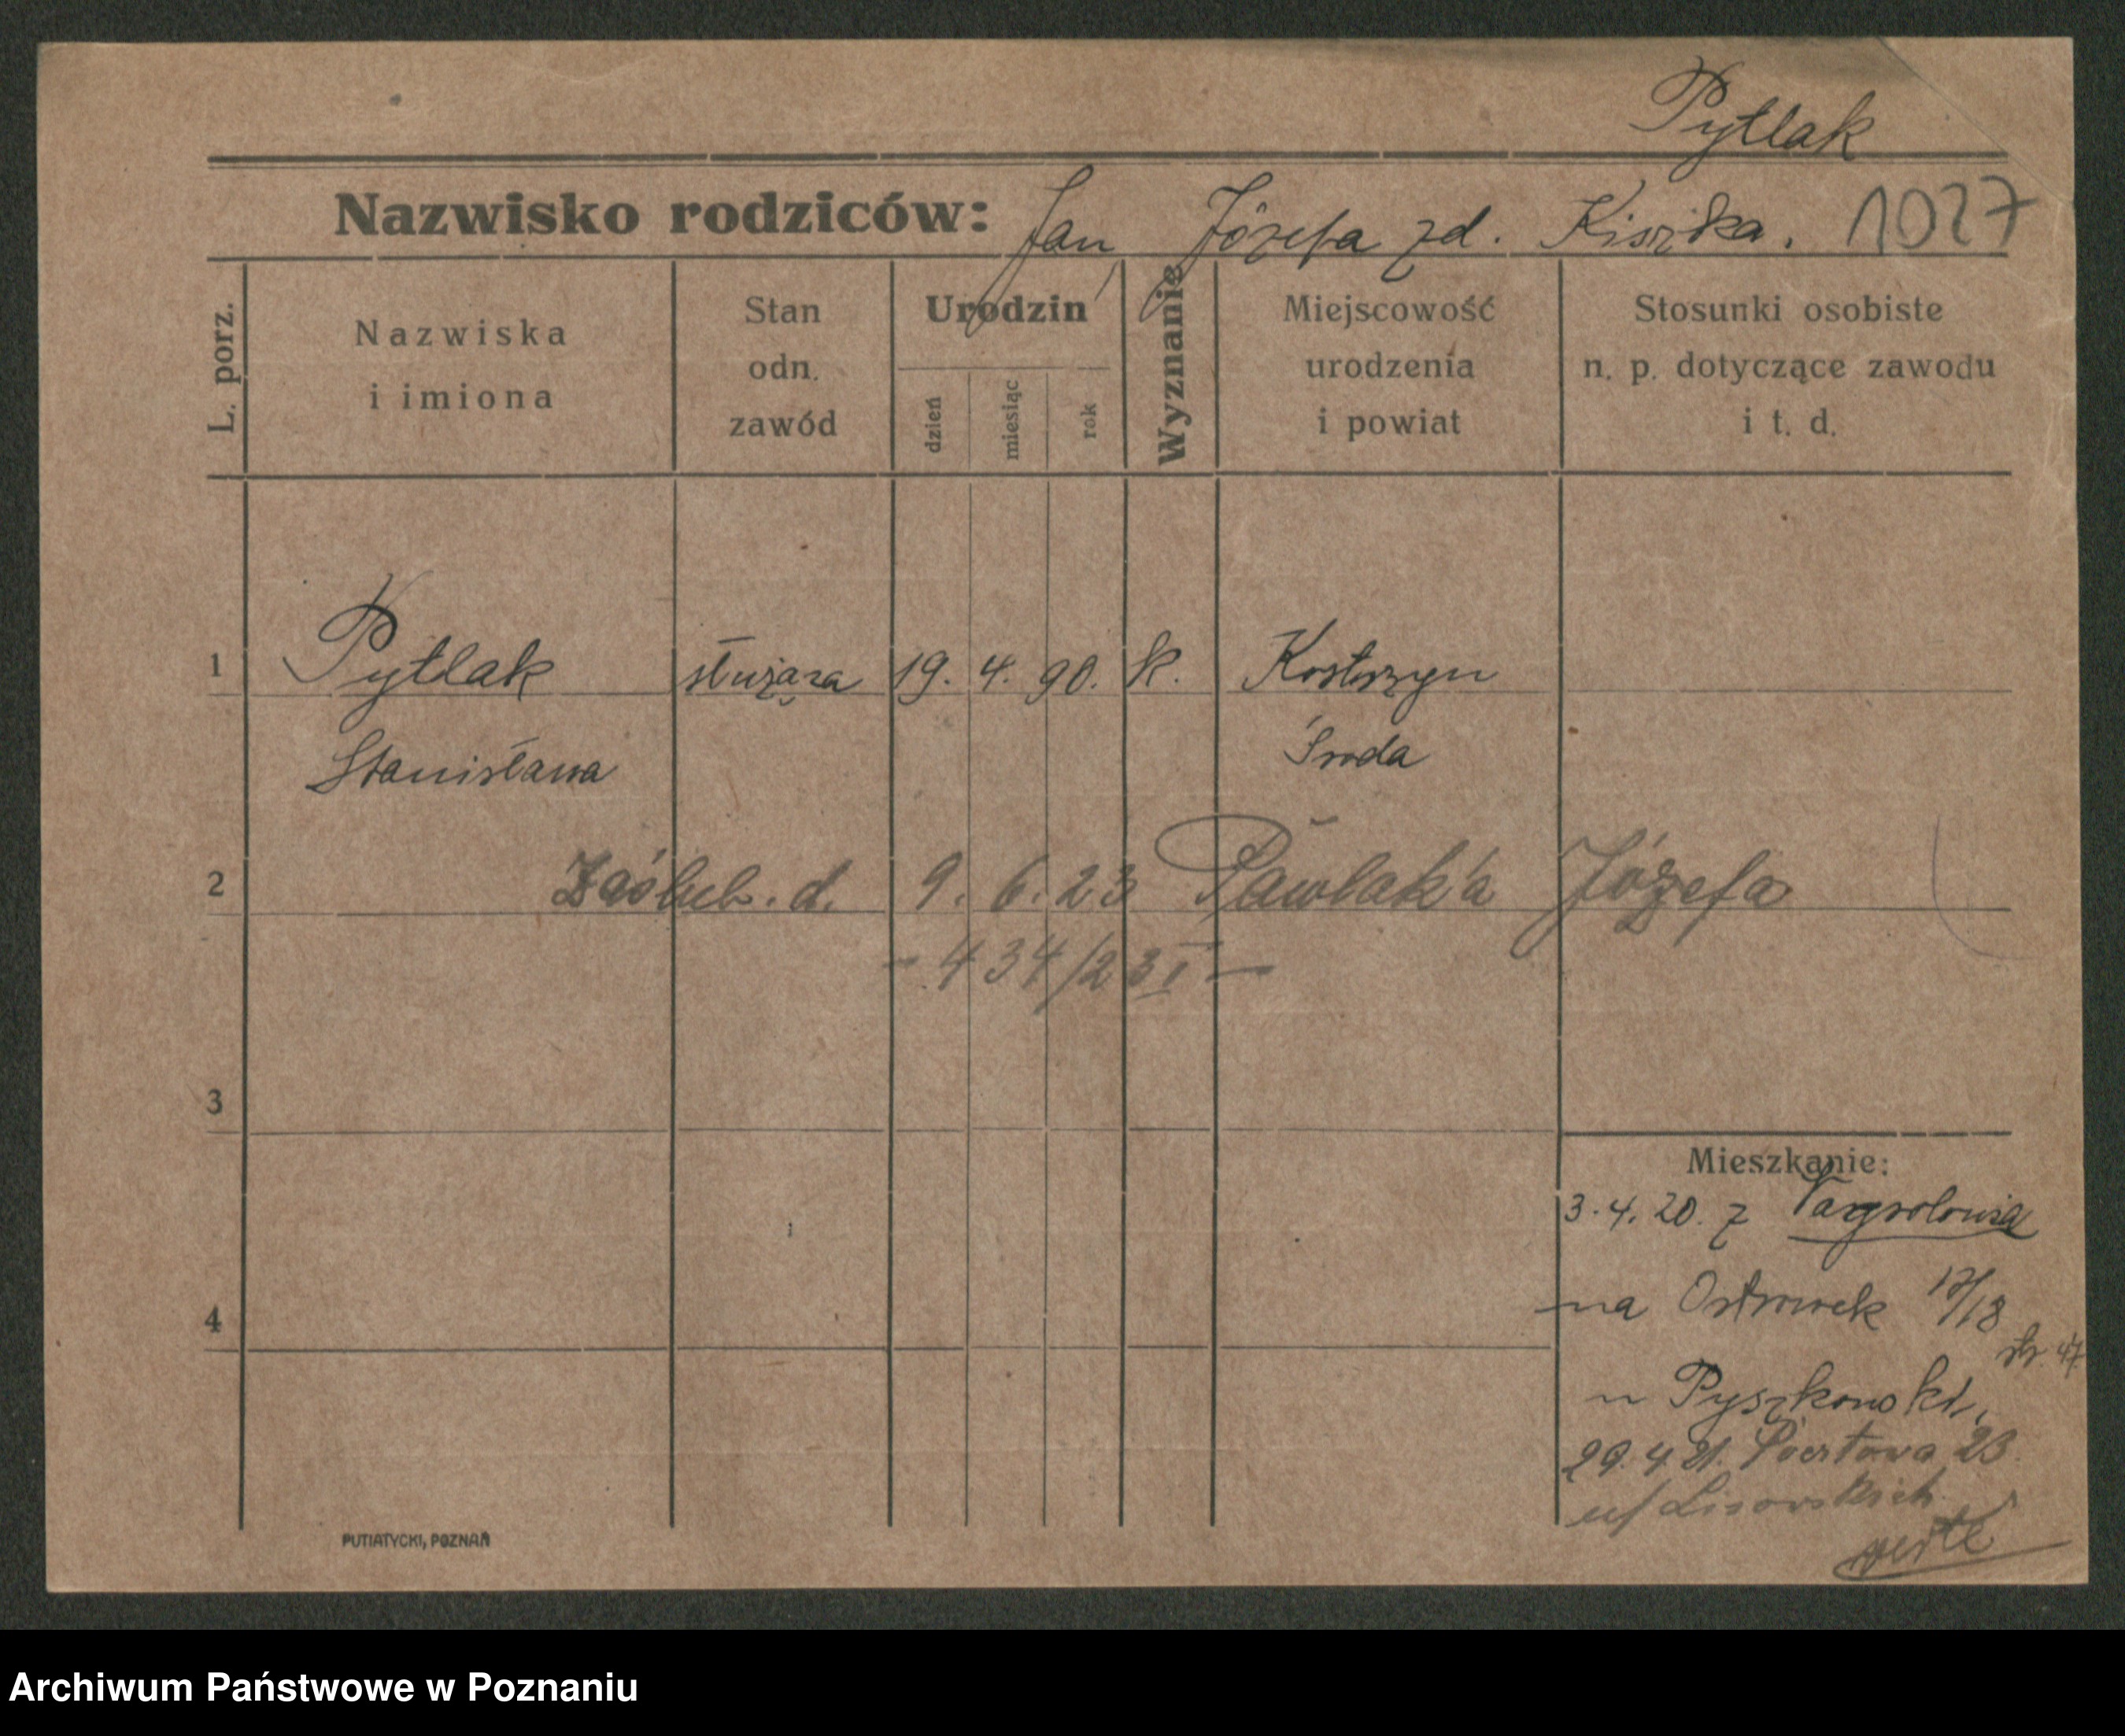 Pytlak
Nazwisko rodziców: Jan, Józefa zd. Kiszka. 1027
L. porz.
Nazwiska
i imiona
Stan
odn.
zawód
Urodzin
dzień
miesiąc
rok
Wyznanie
Miejscowość
urodzenia
i powiat
Stosunki osobiste
n. p. dotyczące zawodu
i t. d.
1 Pytlak służąca 19. 4. 90. k. Kostrzyn
Stanisława Środa
2 Zaślub. d. 9. 6. 23 Pawlak'a Józefa
- 434/23 I -
3
Mieszkanie:
3. 4. 20. z
4 na Ostrówek 17/18
str. 47
u Pyszkowski,
29. 4. 21. Pocztowa 23.
u/ Lisowskich
PUTIATYCKI, POZNAŃ
Archiwum Państwowe w Poznaniu